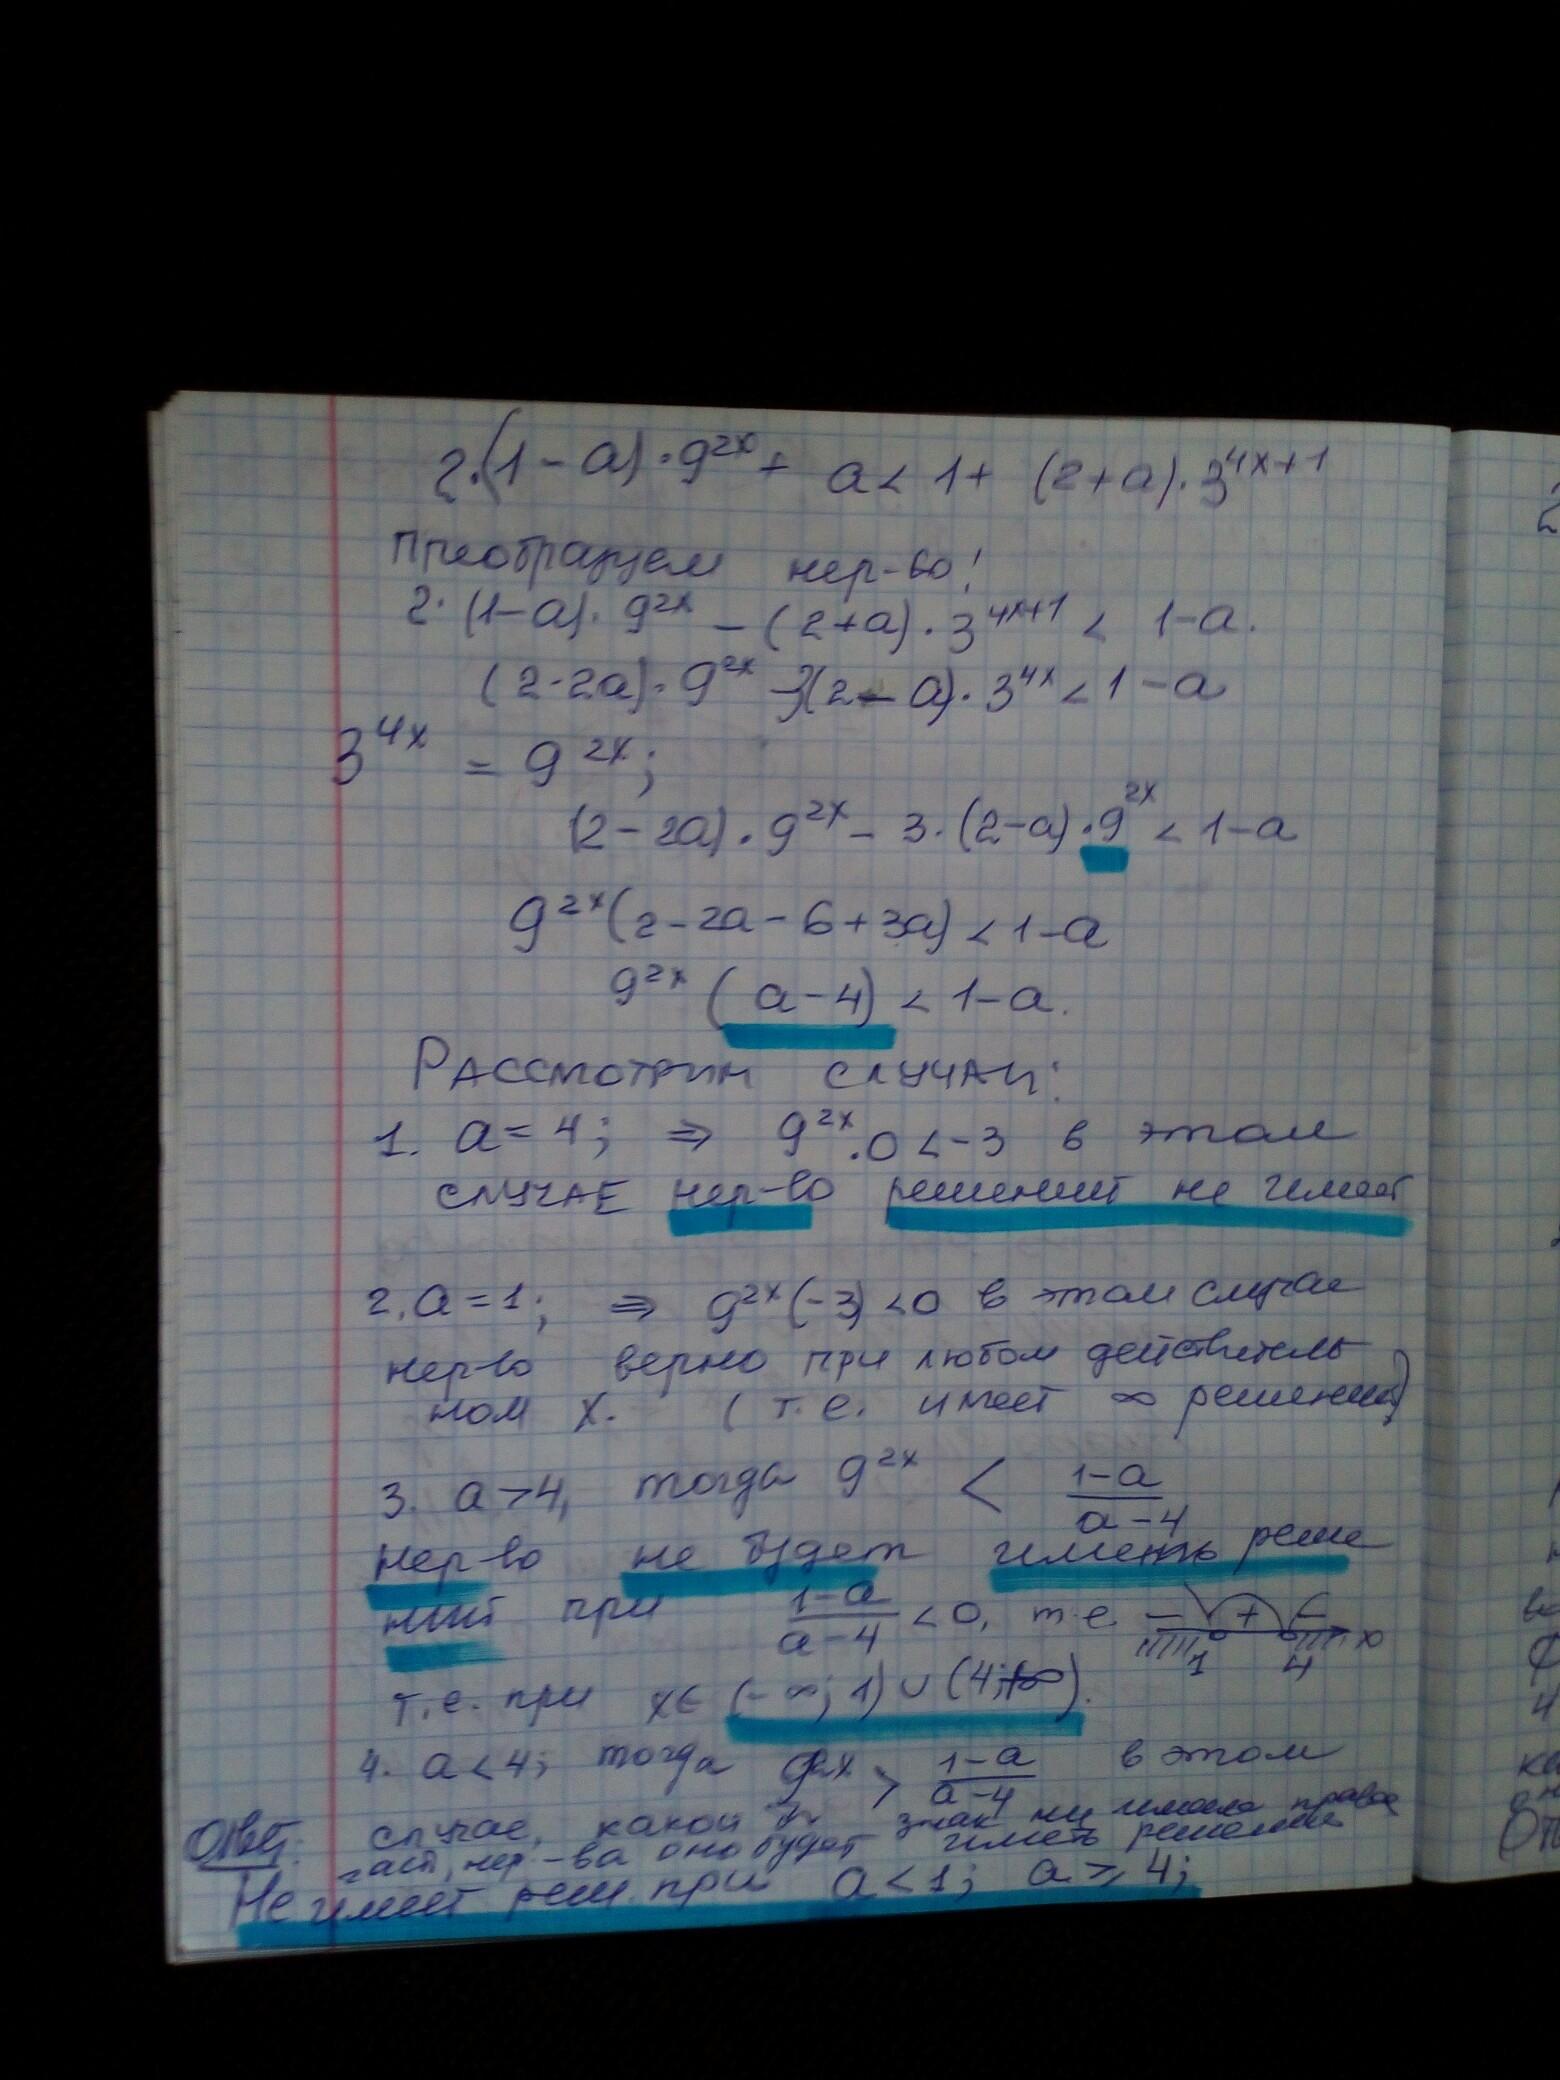 2·(1-a)·9^{2x} + a < 1 + (2+a)·3^{4x+1}
Преобразуем нер-во!
2·(1-a)·9^{2x} - (2+a)·3^{4x+1} < 1-a.
(2-2a)·9^{2x} - 3(2-a)·3^{4x} < 1-a
3^{4x} = 9^{2x};
(2-2a)·9^{2x} - 3·(2-a)·9^{2x} < 1-a
9^{2x}(2-2a-6+3a) < 1-a
9^{2x}(a-4) < 1-a.
РАССМОТРИМ СЛУЧАИ:
1. a=4; ⇒ 9^{2x}·0 < -3 в этом
СЛУЧАЕ нер-во решений не имеет
2. a=1; ⇒ 9^{2x}(-3) < 0 в этом случае
нер-во верно при любом действитель
ном x. (т.е. имеет ∞ решений)
3. a>4, тогда 9^{2x} < \frac{1-a}{a-4}
нер-во не будет иметь реше
ний при \frac{1-a}{a-4} < 0, т.е. - + - 1 4 x
т.е. при x∈ (-∞; 1) ∪ (4; +∞).
4. a<4; тогда 9^{2x} > \frac{1-a}{a-4} в этом
случае, какой бы знак ни имела правая
част, нер-ва оно будет иметь решение
Ответ:
Не имеет реш. при a<1; a≥4;